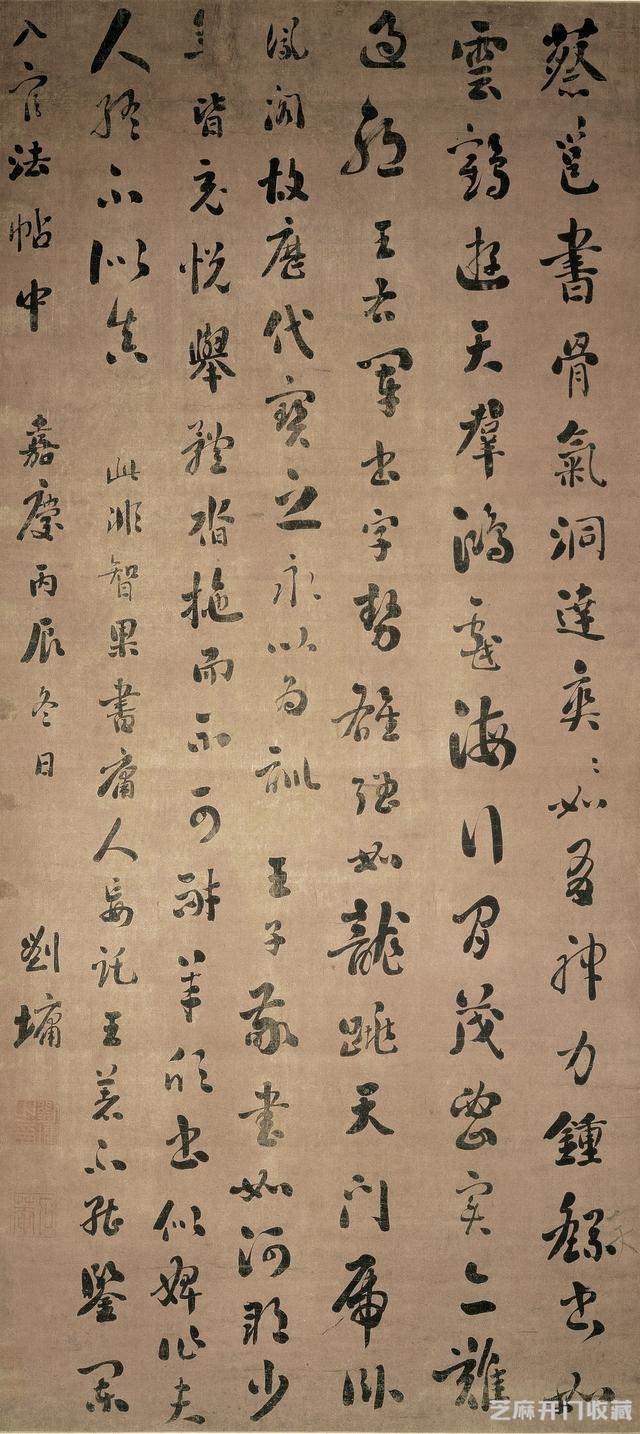 蔡邕書骨氣洞達爽〻如有神力鍾繇書如
雲鶴遊天群鴻戲海行間茂密實亦難
過 王右軍書字勢雄強如龍跳天門虎臥
鳳閣故歷代寶之永以為訓 王子敬書如河朔少
年皆充悅舉體沓拖而不可耐羊欣書似婢作夫
人終不似真 此非智果書庸人妄託王著不能鑒闌
入官法帖中 嘉慶丙辰冬日 劉墉
芝麻开门收藏